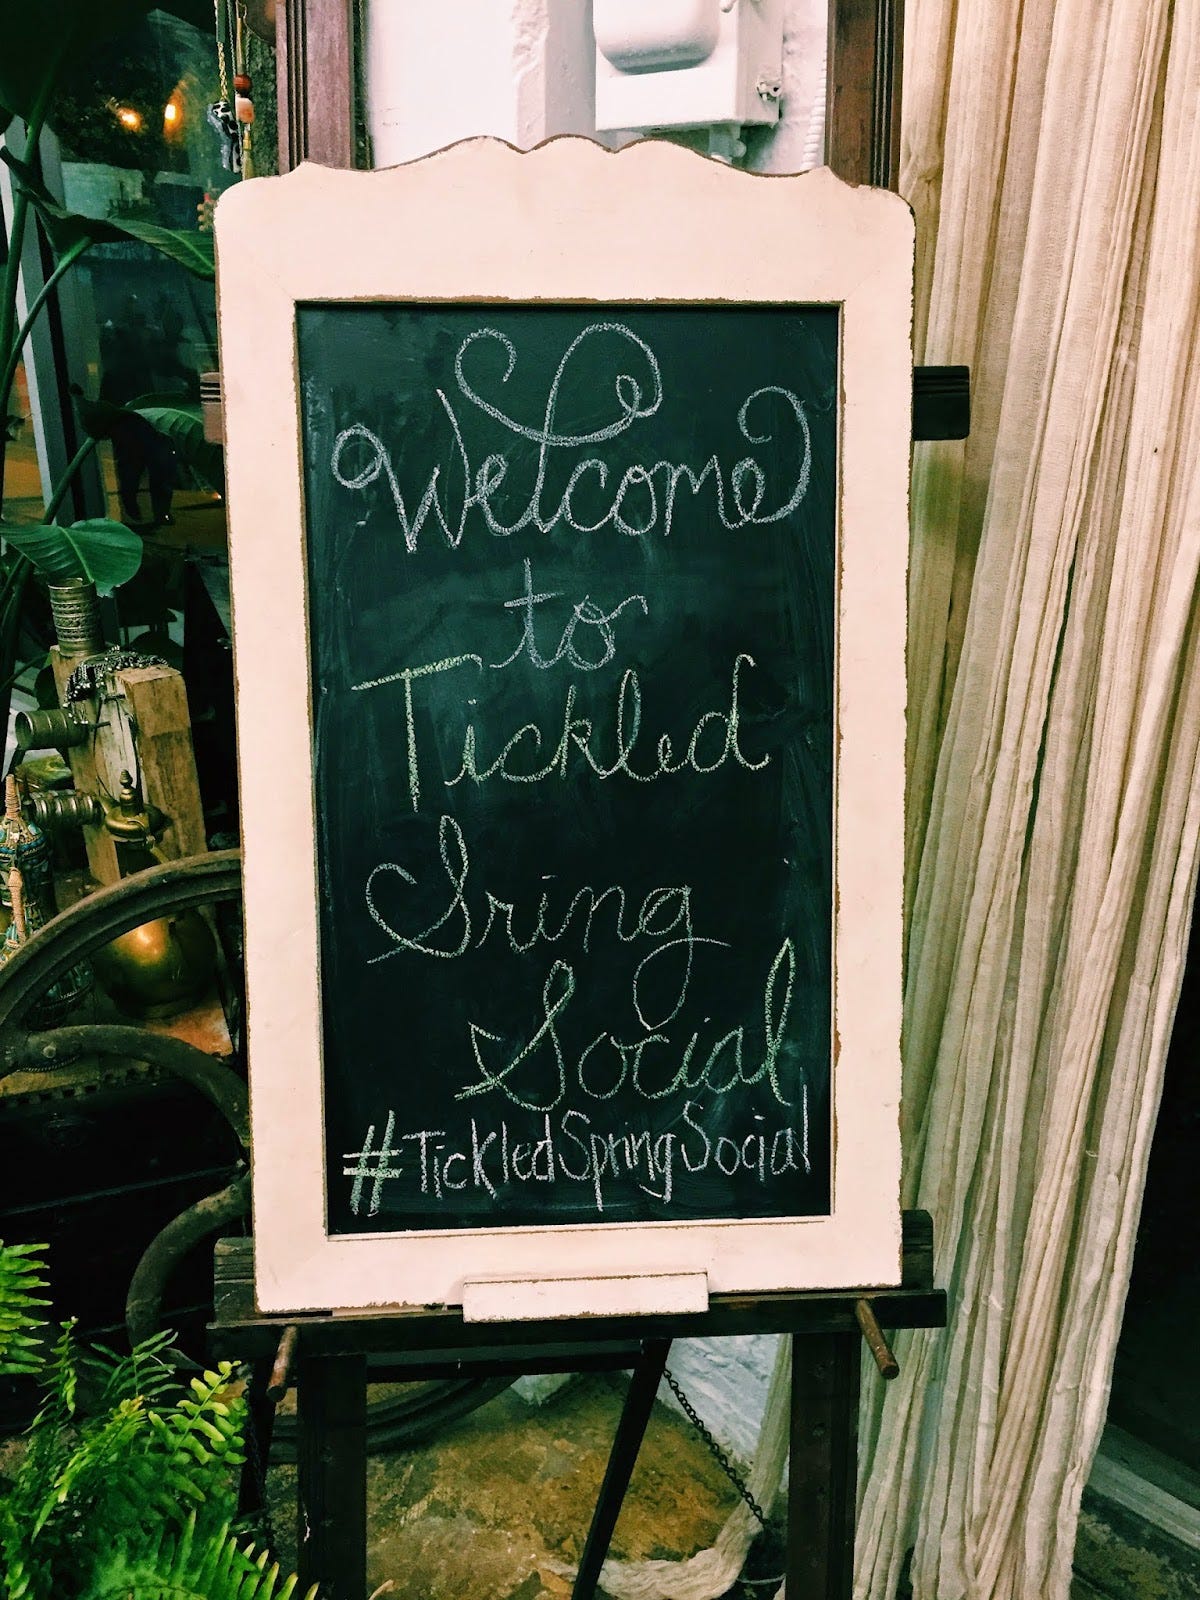 Welcome
to
Tickled
Sring
Social
#TickledSpringSocial